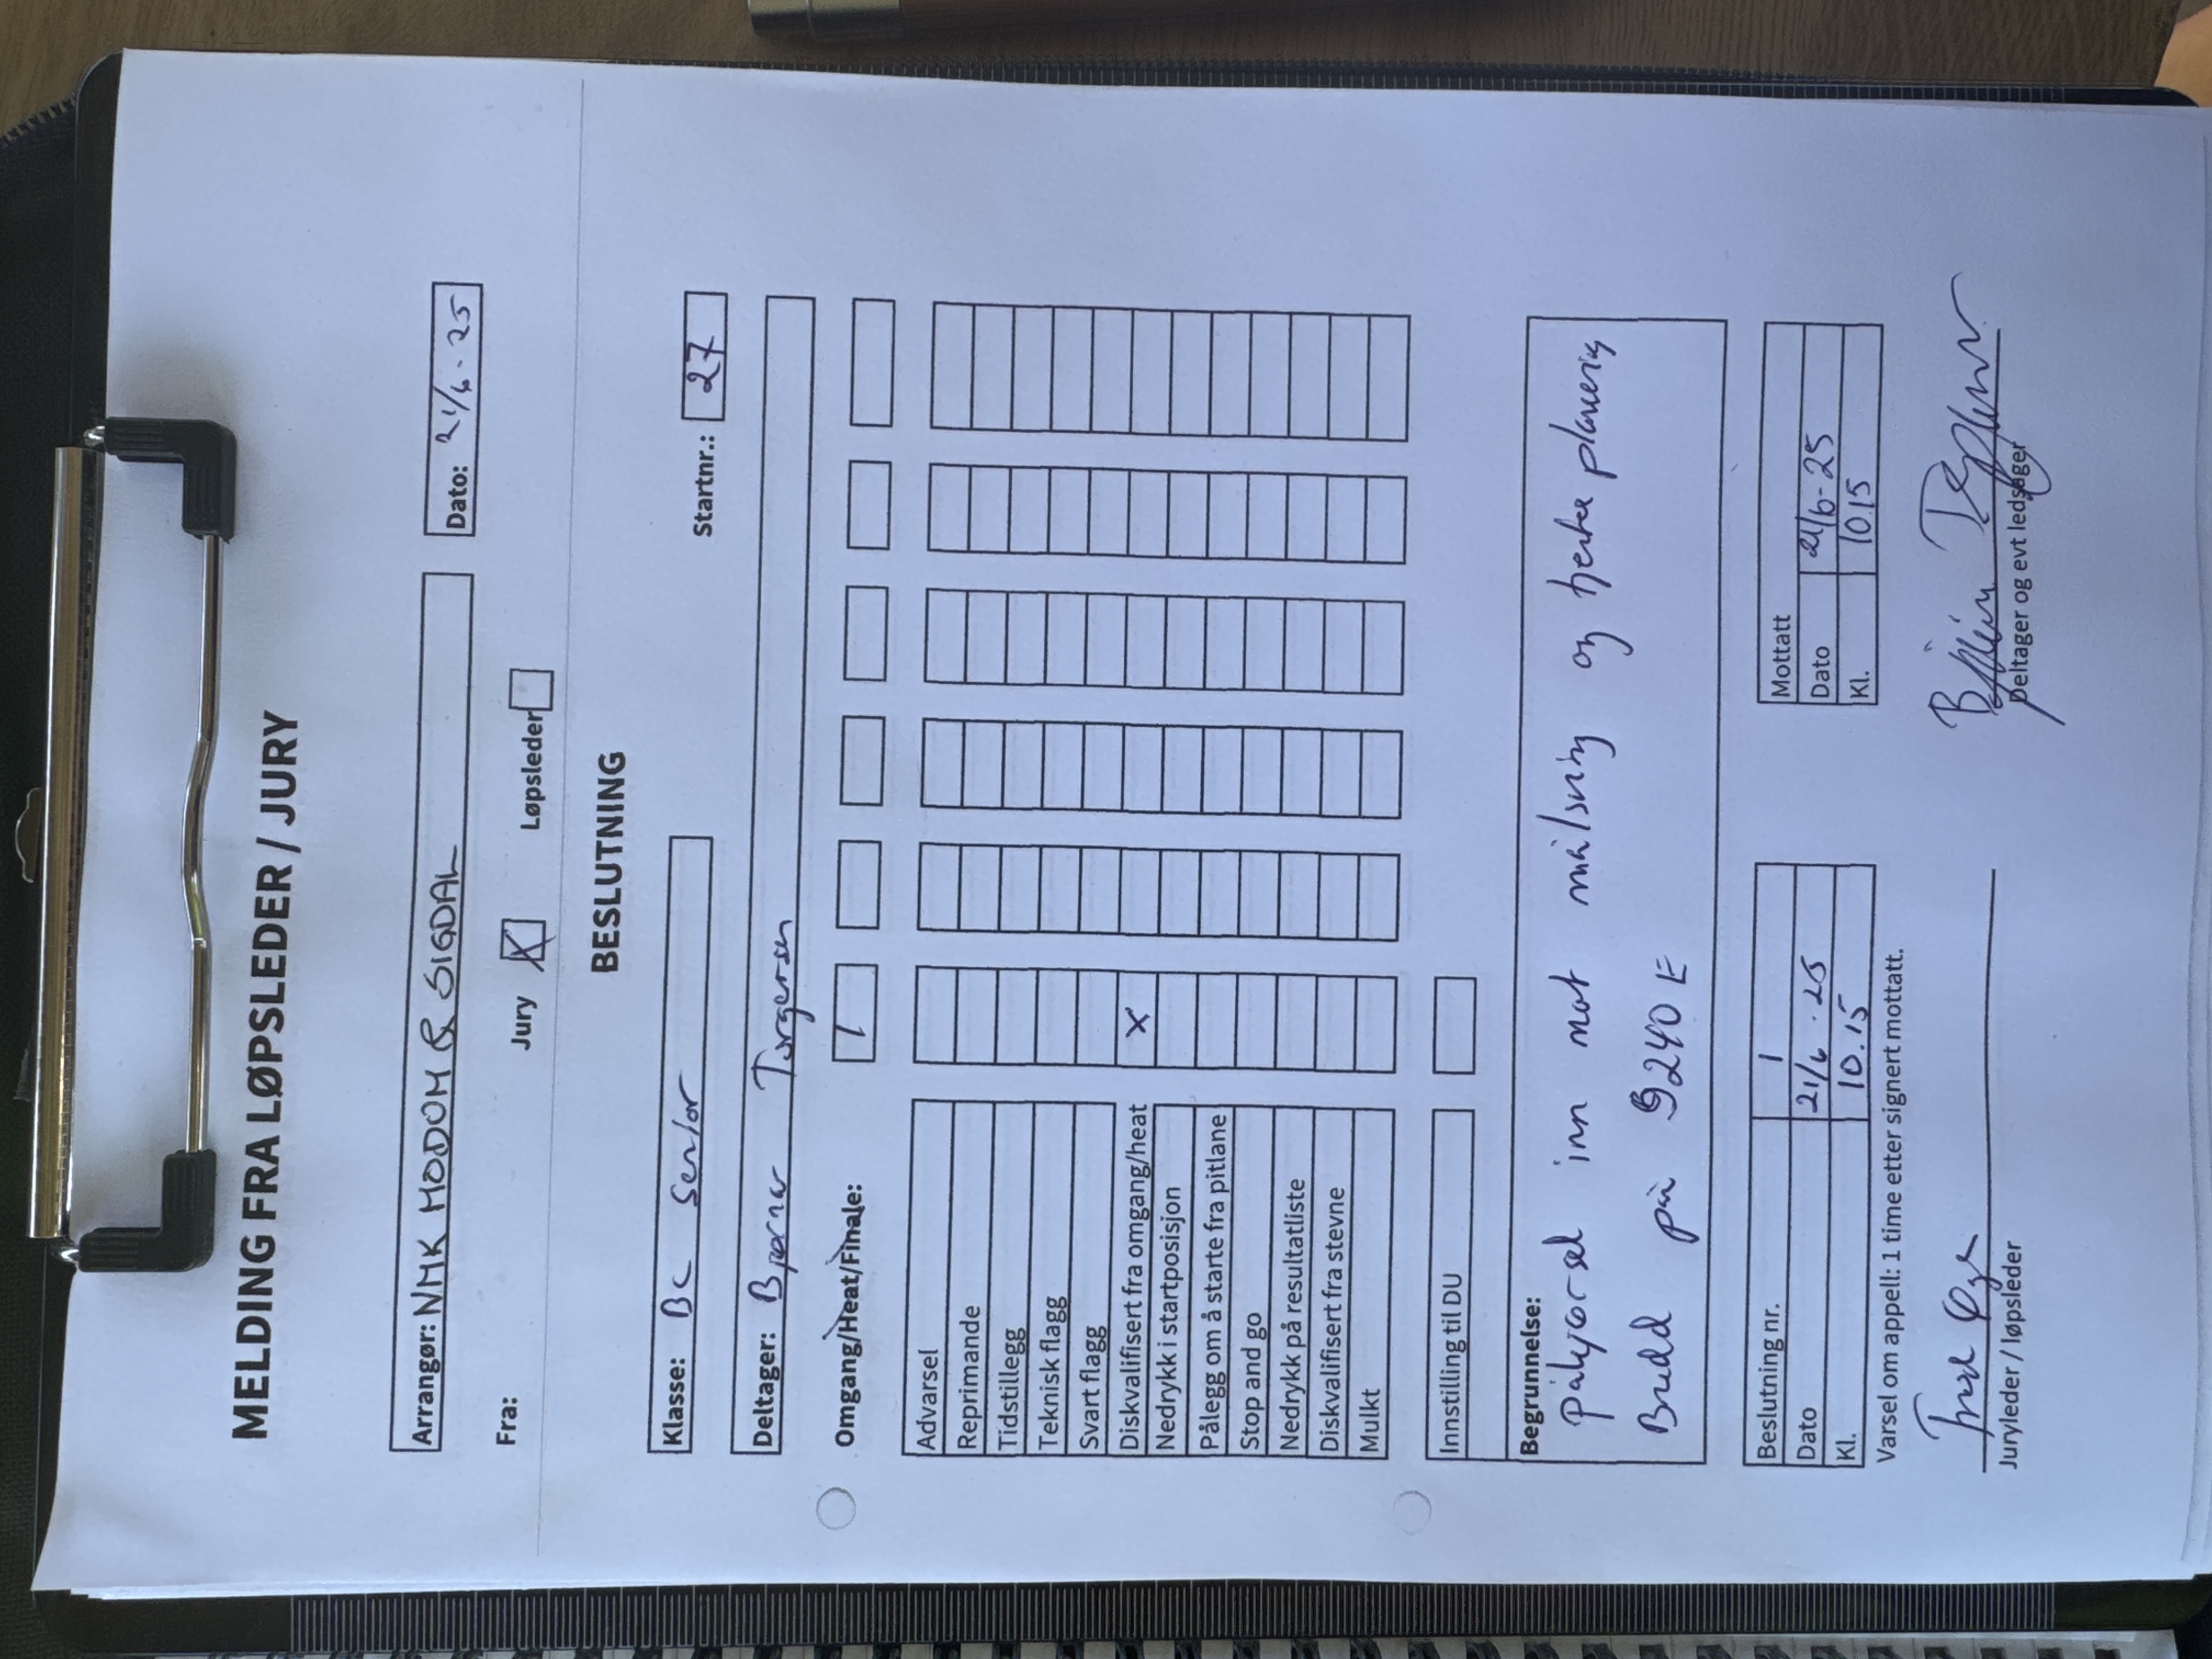 MELDING FRA LØPSLEDER / JURY
Arrangør: NMK MODUM & SIGDAL
Dato: 21/6-25
Fra:
Jury X
Løpsleder
BESLUTNING
Klasse: BC Senior
Startnr.: 27
Deltager: Bjørnar Torgersen
Omgang/Heat/Finale: 1
Advarsel
Reprimande
Tidstillegg
Teknisk flagg
Svart flagg
Diskvalifisert fra omgang/heat X
Nedrykk i startposisjon
Pålegg om å starte fra pitlane
Stop and go
Nedrykk på resultatliste
Diskvalifisert fra stevne
Mulkt
Innstilling til DU
Begrunnelse:
Påkjørsel inn mot målsving og plassering
Brudd på § 240 E
Beslutning nr. 1
Dato 21/6-25
Kl. 10.15
Mottatt
Dato 21/6-25
Kl. 1015
Varsel om appell: 1 time etter signert mottatt.
Juryleder / løpsleder
Deltager og evt ledsager